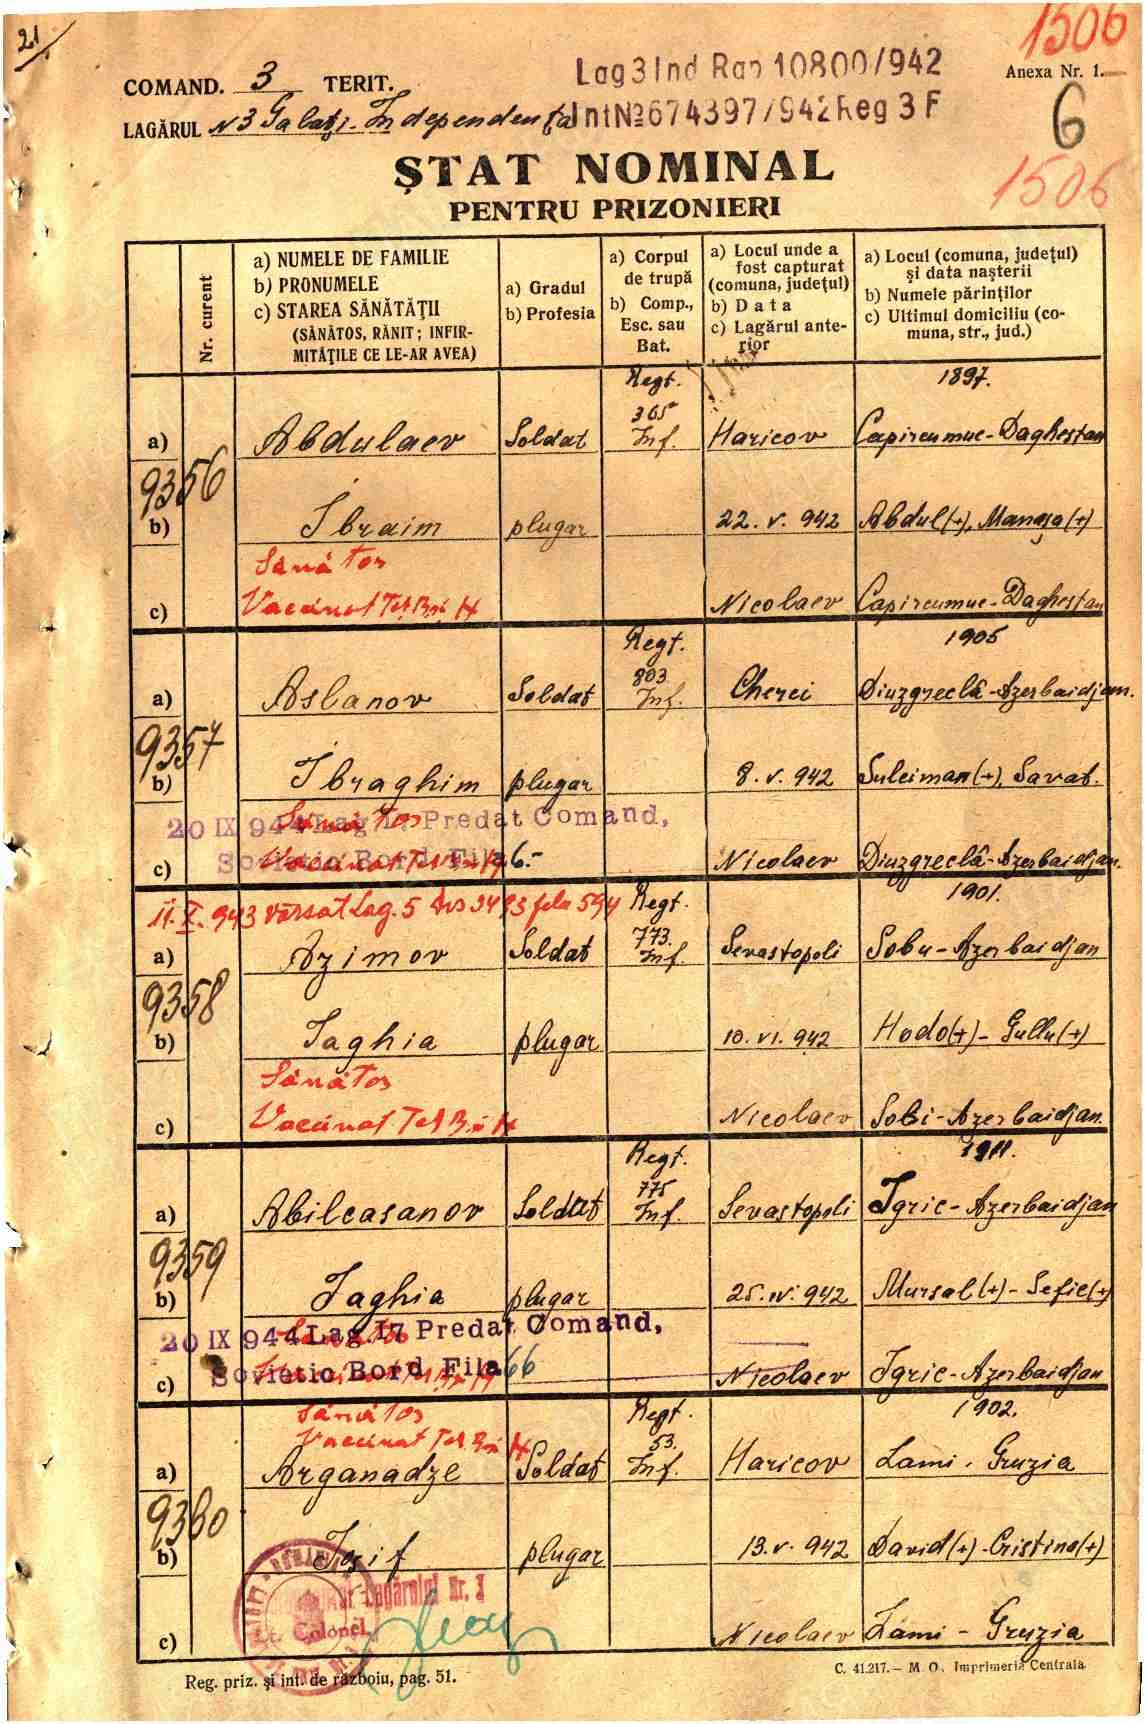 21.
1506
COMAND. 3 TERIT.
Lag 3 Ind Rap 10800/942
Anexa Nr. 1.
LAGĂRUL N 3 Galați-Independența
Int № 674397/942 Reg 3 F
6
ȘTAT NOMINAL
1506
PENTRU PRIZONIERI
Nr. curent
a) NUMELE DE FAMILIE
b) PRONUMELE
c) STAREA SĂNĂTĂȚII
(SĂNĂTOS, RĂNIT; INFIR-
MITĂȚILE CE LE-AR AVEA)
a) Gradul
b) Profesia
a) Corpul
de trupă
b) Comp.,
Esc. sau
Bat.
a) Locul unde a
fost capturat
(comuna, județul)
b) Data
c) Lagărul ante-
rior
a) Locul (comuna, județul)
și data nașterii
b) Numele părinților
c) Ultimul domiciliu (co-
muna, str., jud.)
Regt. 1897.
365
a) Abdulaev Soldat Inf. Haricov Capircumuc-Daghestan
9356
b) Ibraim plugar 22. V. 942 Abdul(+), Mangșa(+)
Sănătos
c) Vaccinat Tet. Nicolaev Capircumuc-Daghestan
Regt. 1905
803.
a) Aslanov Soldat Inf. Cherci Diuzgreclâ-Azerbaidjan.
9357
b) Ibraghim plugar 8. V. 942 Suleiman(+), Savat.
Sănătos
20 IX 944 Lag 17 Predat Comand,
c) Sovietic Bord Fila 6.- Nicolaev Diuzgreclâ-Azerbaidjan.
Vaccinat
1901.
11. X. 943 vărsat Lag. 5 fila 594 Regt.
773.
a) Azimov Soldat Inf. Sevastopoli Sobu-Azerbaidjan
9358
b) Taghia plugar 10. VI. 942 Hodo(+)- Gullu(+)
Sănătos
c) Vaccinat Tet Nicolaev Sobi-Azerbaidjan.
Regt. 1911.
775
a) Abilcasanov Soldat Inf. Sevastopoli Igric-Azerbaidjan
9359
b) Taghia plugar 25. IV. 942 Mursal(+)- Sefie(+)
20 IX 944 Lag 17 Predat Comand,
c) Sovietic Bord Fila 66 Nicolaev Igric-Azerbaidjan
Sănătos Regt. 1902.
Vaccinat Tet. 53.
a) Arganadze Soldat Inf. Haricov Lami. Gruzia
9360
b) Iosif plugar 13. V. 942 David(+)-Cristina(+)
Lagărului Nr. 3
Colonel,
c) Nicolaev Lami - Gruzia
Reg. priz. și int. de războiu, pag. 51.
C. 41.217.— M. O. Imprimeria Centrală